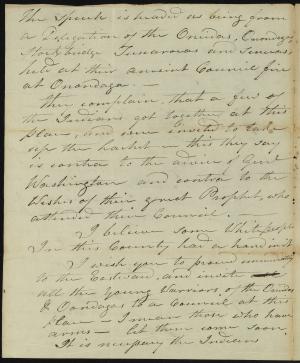 The Speech is headed as being from
a Delegation of the Oneidas, Onondagas
Stockbridge Tuscaroras and Senecas,
held at their ancient Council fire
at Onondaga. —
They complain, that a few of
the Indians got together at this
place, and were invited to take
up the hatchet — this they say
is contra to the advice of Genl
Washington and contra to the
Wishes of their great Prophet, who
attended their Council.
I believe some White people
in this County had a hand in it
I wish you to proceed immediately
to the Eastward, and invite
all the young Warriors of the Oneidas
& Onondagas to a Council at this
place — I mean those who have
arms — let them come soon.
It is necessary the Indians